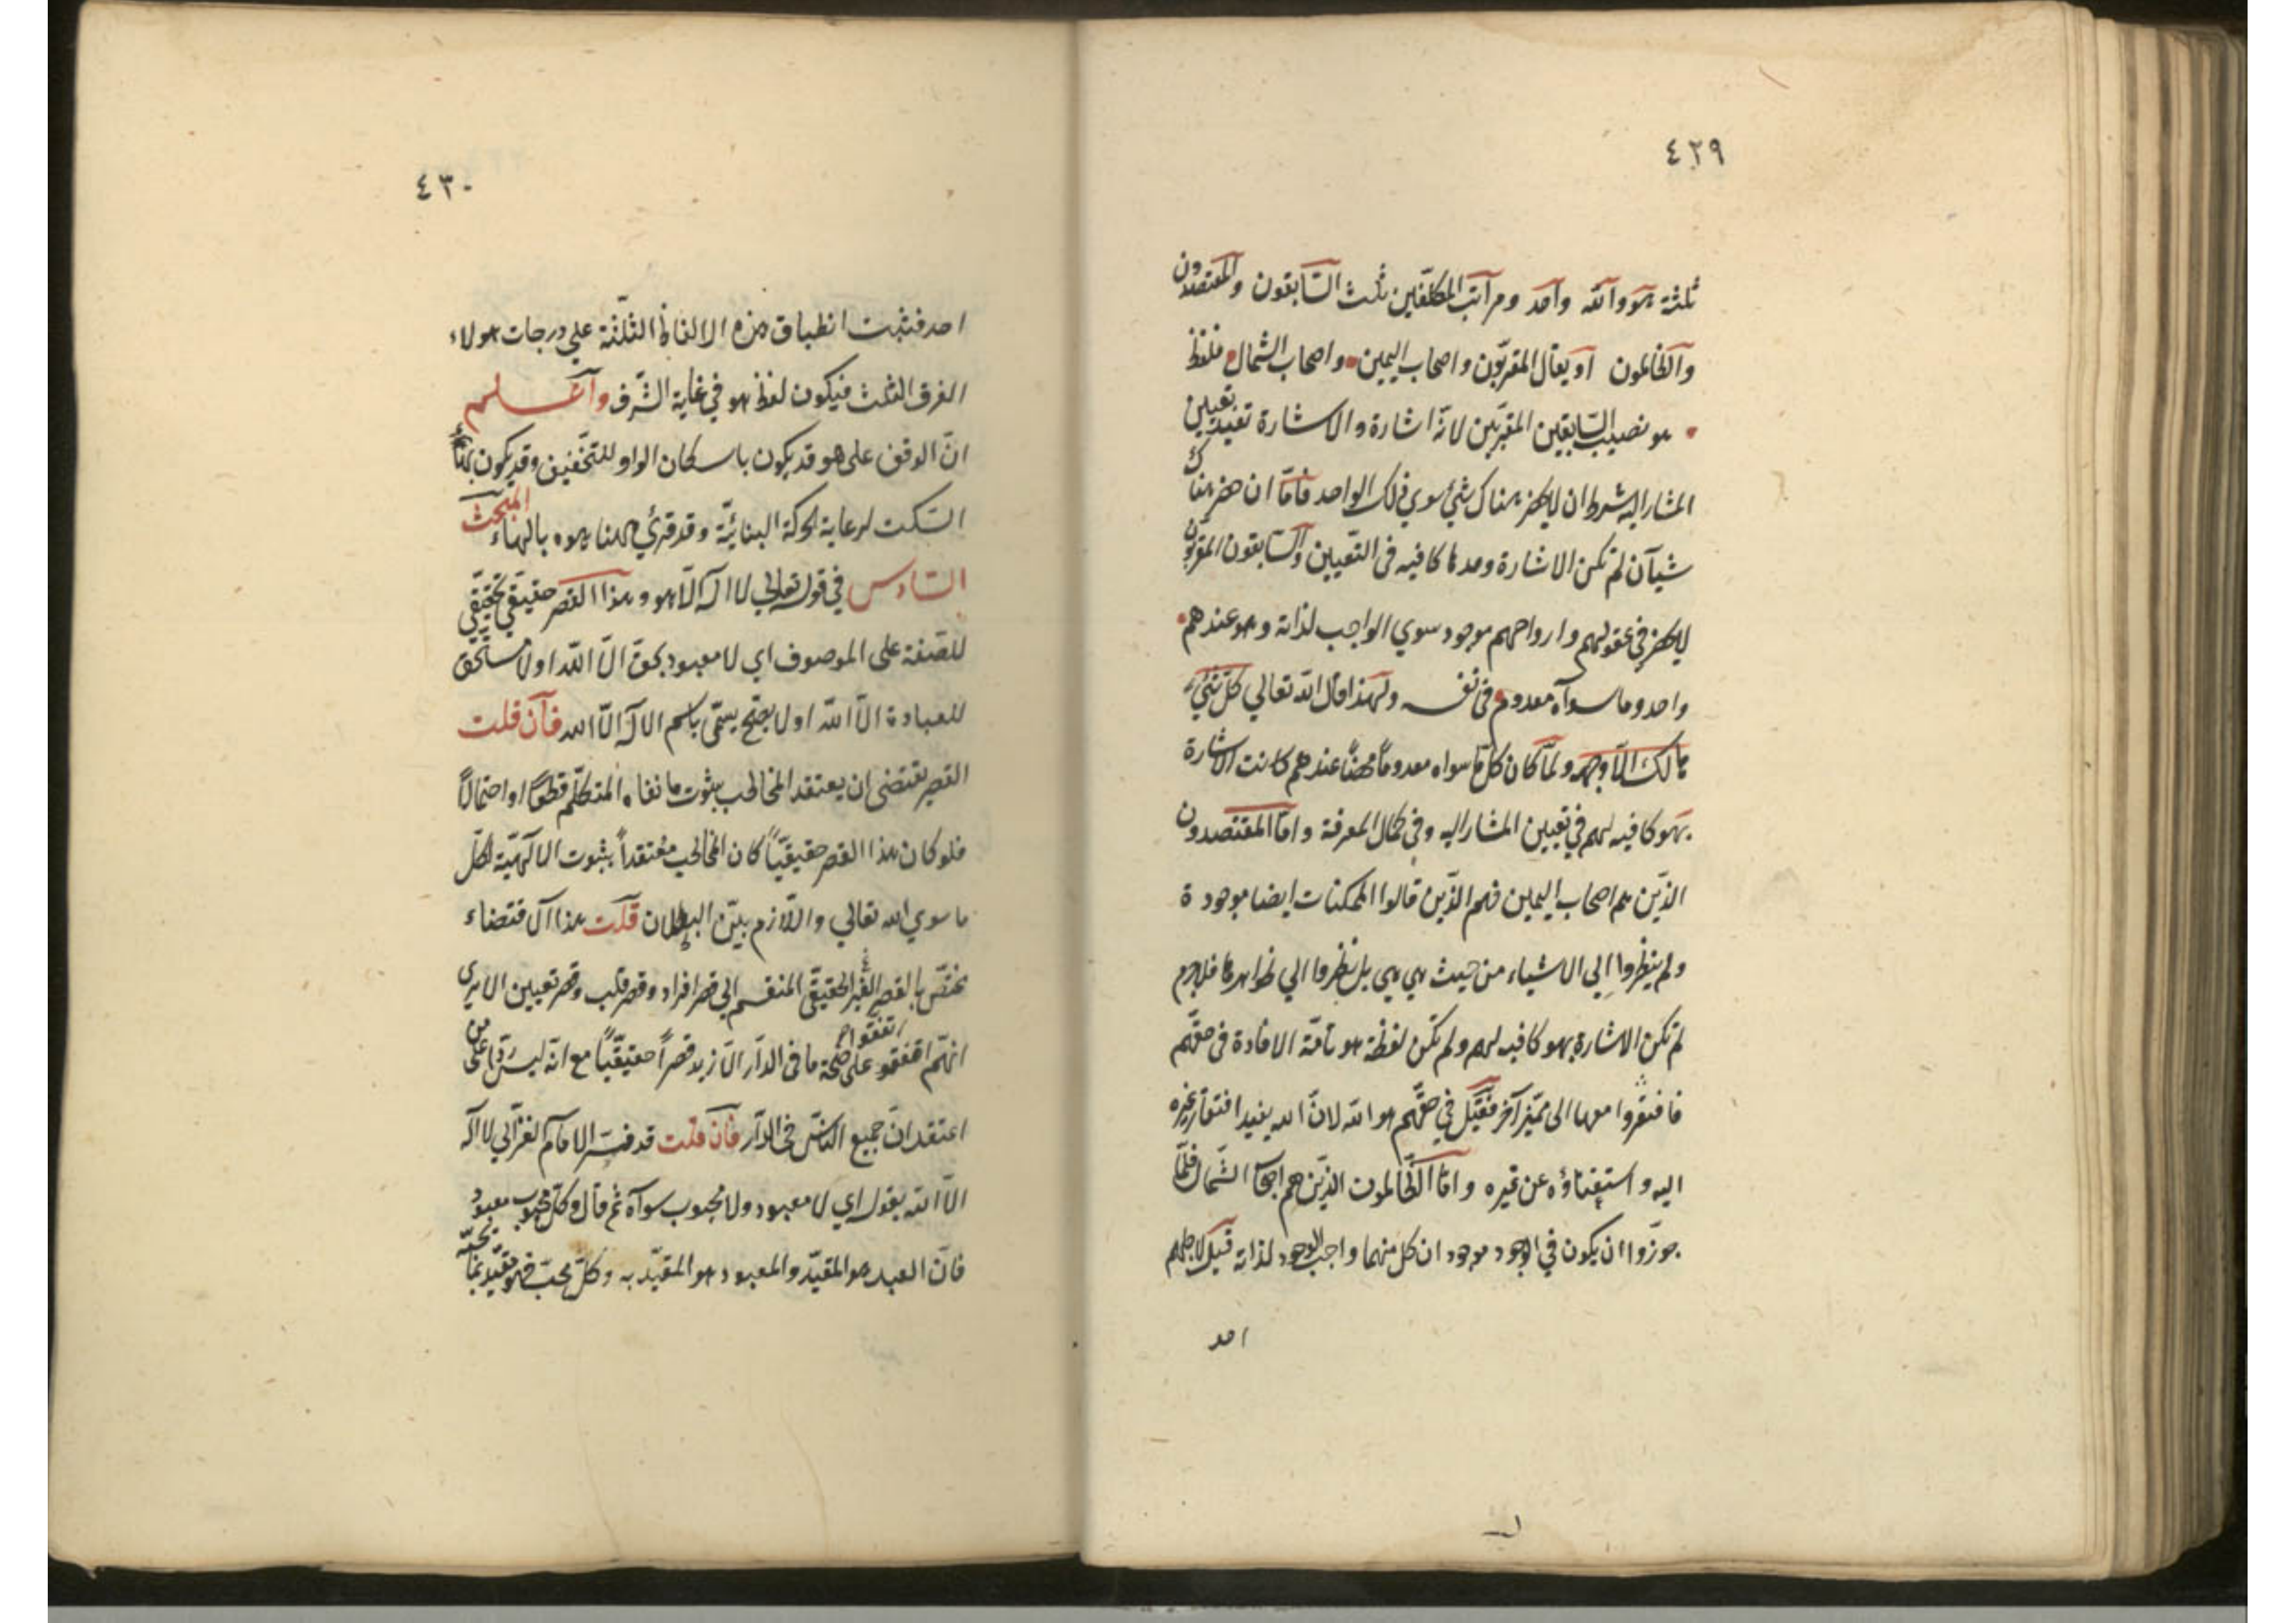 ٤٢٩
ثلثة هو والله واحد ومراتب المكلفين ثلث السابقون والمقتصدون
والظالمون او يقال المقربون واصحاب اليمين واصحاب الشمال فلفظ
هو نصيب السابقين المقربين لانه اشارة والاشارة تفيد تعيين
المشار اليه بشرط ان لا يحضر هناك شيء سوي ذلك الواحد فاما ان حضر هناك
شيآن لم تكن الاشارة وحدها كافيه فى التعيين والسابقون المقربون
لا يحضر في عقولهم وارواحهم موجود سوي الواجب لذاته وهو عندهم
واحد وما سواه معدوم فى نفسه ولهذا قال الله تعالي كل شيء
هالك الا وجهه ولما كان كل ما سواه معدوما محضا عندهم كانت الاشارة
بهو كافيه لهم في تعيين المشار اليه وفى كمال المعرفة واما المقتصدون
الذين هم اصحاب اليمين فهم الذين قالوا الممكنات ايضا موجودة
ولم ينظروا الي الاشياء من حيث هي هي بل نظروا الي ظواهرها فلا جرم
لم تكن الاشارة بهو كافيه لهم ولم تكن لفظة هو تامة الافادة فى حقهم
فافتقروا معها الى مميز آخر فقيل في حقهم هو الله لان الله يفيد افتقار غيره
اليه واستغناؤه عن غيره واما الظالمون الذين هم اصحاب الشمال فلما
جوزوا ان يكون في الوجود موجودان كل منهما واجب الوجود لذاته قيل لاجلهم
احد
٤٣٠
احد فثبت انطباق هذه الالفاظ الثلثة علي درجات هولاء
الفرق الثلث فيكون لفظ هو في غاية الشرف واعلم
ان الوقف على هو قد يكون باسكان الواو للتخفيف وقد يكون بهاء
السكت لرعاية الحركة البنائية وقد قرئ ههنا هوه بالهاء المبحث
السادس في قوله تعالي لا اله الا هو وهذا القصر حقيقي تحقيقي
للصفة على الموصوف اي لا معبود بحق الا الله او لا مستحق
للعبادة الا الله او لا يسمى باسم الاله الا الله فان قلت
القصر يقتضي ان يعتقد المخاطب بثبوت ما نفاه المتكلم قطعا او احتمالا
فلو كان هذا القصر حقيقيا كان المخاطب معتقدا بثبوت الالهية لكل
ما سوي الله تعالي واللازم بين البطلان قلت هذا الاقتضاء
يختص بالقصر الغير الحقيقي المنقسم الي قصر افراد وقصر قلب وقصر تعيين الا يرى
انهم اتفقوا على صحة ما فى الدار الا زيد قصرا حقيقيا مع انه ليس ردا على من
اعتقد ان جميع الناس فى الدار فان قلت قد فسر الامام الغزالي لا اله
الا الله بقوله اي لا معبود ولا محبوب سواه ثم قال وكل محبوب معبود
فان العبد هو المقيد والمعبود هو المقيد به وكل محب فهو مقيد بما يحبه